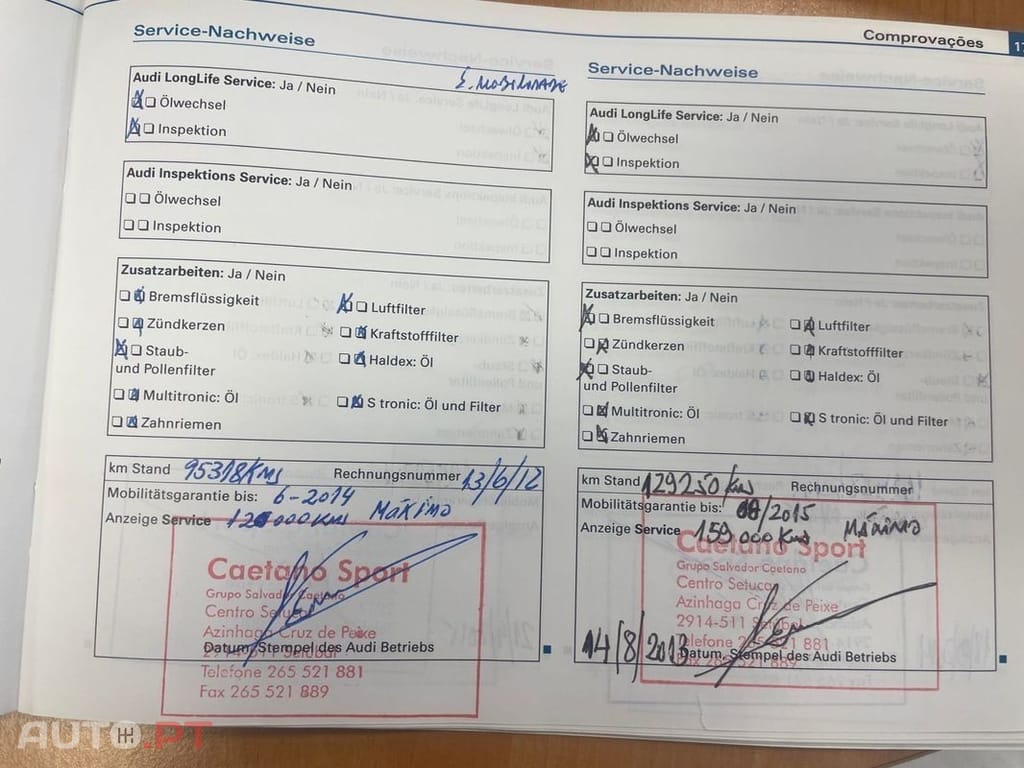 Comprovações 17
Service-Nachweise
Audi LongLife Service: Ja / Nein
Ölwechsel
Inspektion
Audi Inspektions Service: Ja / Nein
Ölwechsel
Inspektion
Zusatzarbeiten: Ja / Nein
Bremsflüssigkeit
Luftfilter
Zündkerzen
Kraftstofffilter
Staub-
und Pollenfilter
Haldex: Öl
Multitronic: Öl
S tronic: Öl und Filter
Zahnriemen
km Stand 95318 KMS Rechnungsnummer 13/6/12
Mobilitätsgarantie bis: 6-2014
Anzeige Service 000 KMS MÁXIMO
Caetano Sport
Grupo Salvador Caetano
Centro
Azinhaga Cruz de Peixe
Datum, Stempel des Audi Betriebs
Telefone 265 521 881
Fax 265 521 889
Service-Nachweise
Audi LongLife Service: Ja / Nein
Ölwechsel
Inspektion
Audi Inspektions Service: Ja / Nein
Ölwechsel
Inspektion
Zusatzarbeiten: Ja / Nein
Bremsflüssigkeit
Luftfilter
Zündkerzen
Kraftstofffilter
Staub-
und Pollenfilter
Haldex: Öl
Multitronic: Öl
S tronic: Öl und Filter
Zahnriemen
km Stand 129250 Kms Rechnungsnummer
Mobilitätsgarantie bis: 08/2015
Anzeige Service 159.000 Kms MÁXIMO
Caetano Sport
Grupo Salvador Caetano
Centro
Azinhaga Cruz de Peixe
2914-511 Setúbal
Telefone 265 521 881
14/8/2013 Datum, Stempel des Audi Betriebs
AUTO.PT